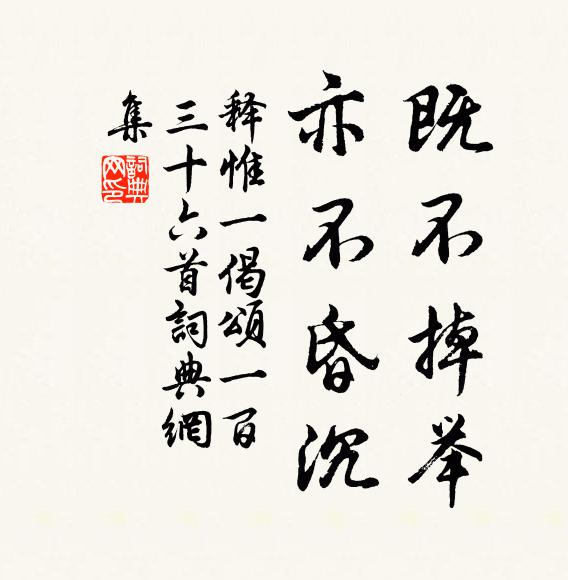 既不掉举
亦不昏沉
释惟一偈颂一百
三十六首詞典網
集
詞典网印